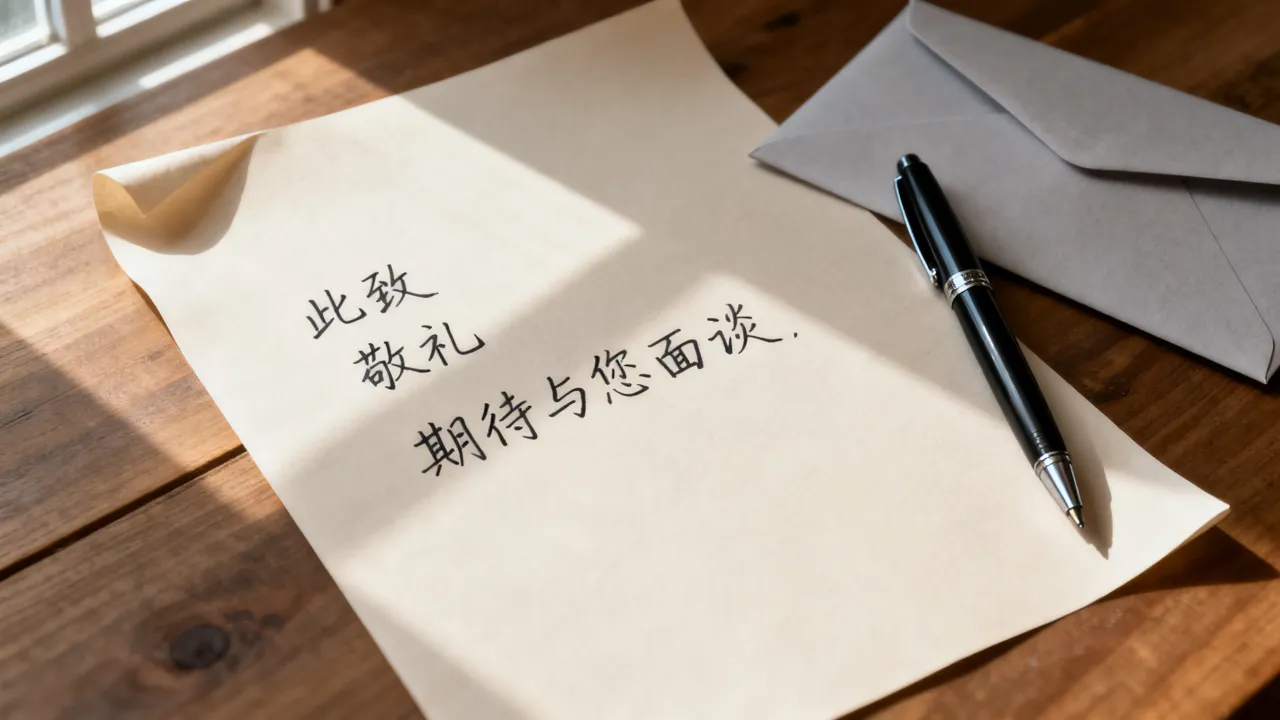 此致
敬礼
期待与您面谈.